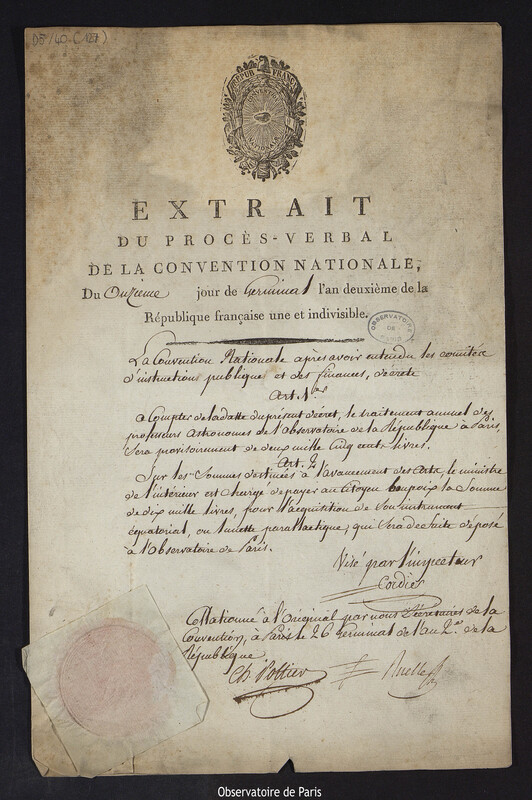 D5/40.(127)
RÉPUB. FRANÇA
CONVENTION
NATIONALE
EXTRAIT
DU PROCÈS-VERBAL
DE LA CONVENTION NATIONALE,
Du Onzieme jour de Germinal l'an deuxième de la
République française une et indivisible.
OBSERVATOIRE
DE
PARIS
La Convention Nationale après avoir entendu les comités
d'instructions publique et des finances, décrete
Art. 1er
a Compter de la datte du présent décret, le traitement annuel des
professeurs astronomes de l'Observatoire de la République à Paris,
Sera provisoirement de deux mille cinq cents livres.
Art. 2
Sur les Sommes destinées à l'avancement des Arts, le ministre
de l'intérieur est chargé de payer au Citoyen la Somme
de dix mille livres, pour l'acquisition de Son instrument
équatorial, ou lunette parallactique, qui Sera de suite déposé
à l'Observatoire de Paris.
Visé par l'inspecteur
Cordier
Collationné à l'Original par nous Sécretaires de la
Convention, à Paris le 26 Germinal de l'an 2.e de la
République
Ch. Pottier Ruelle
Observatoire de Paris